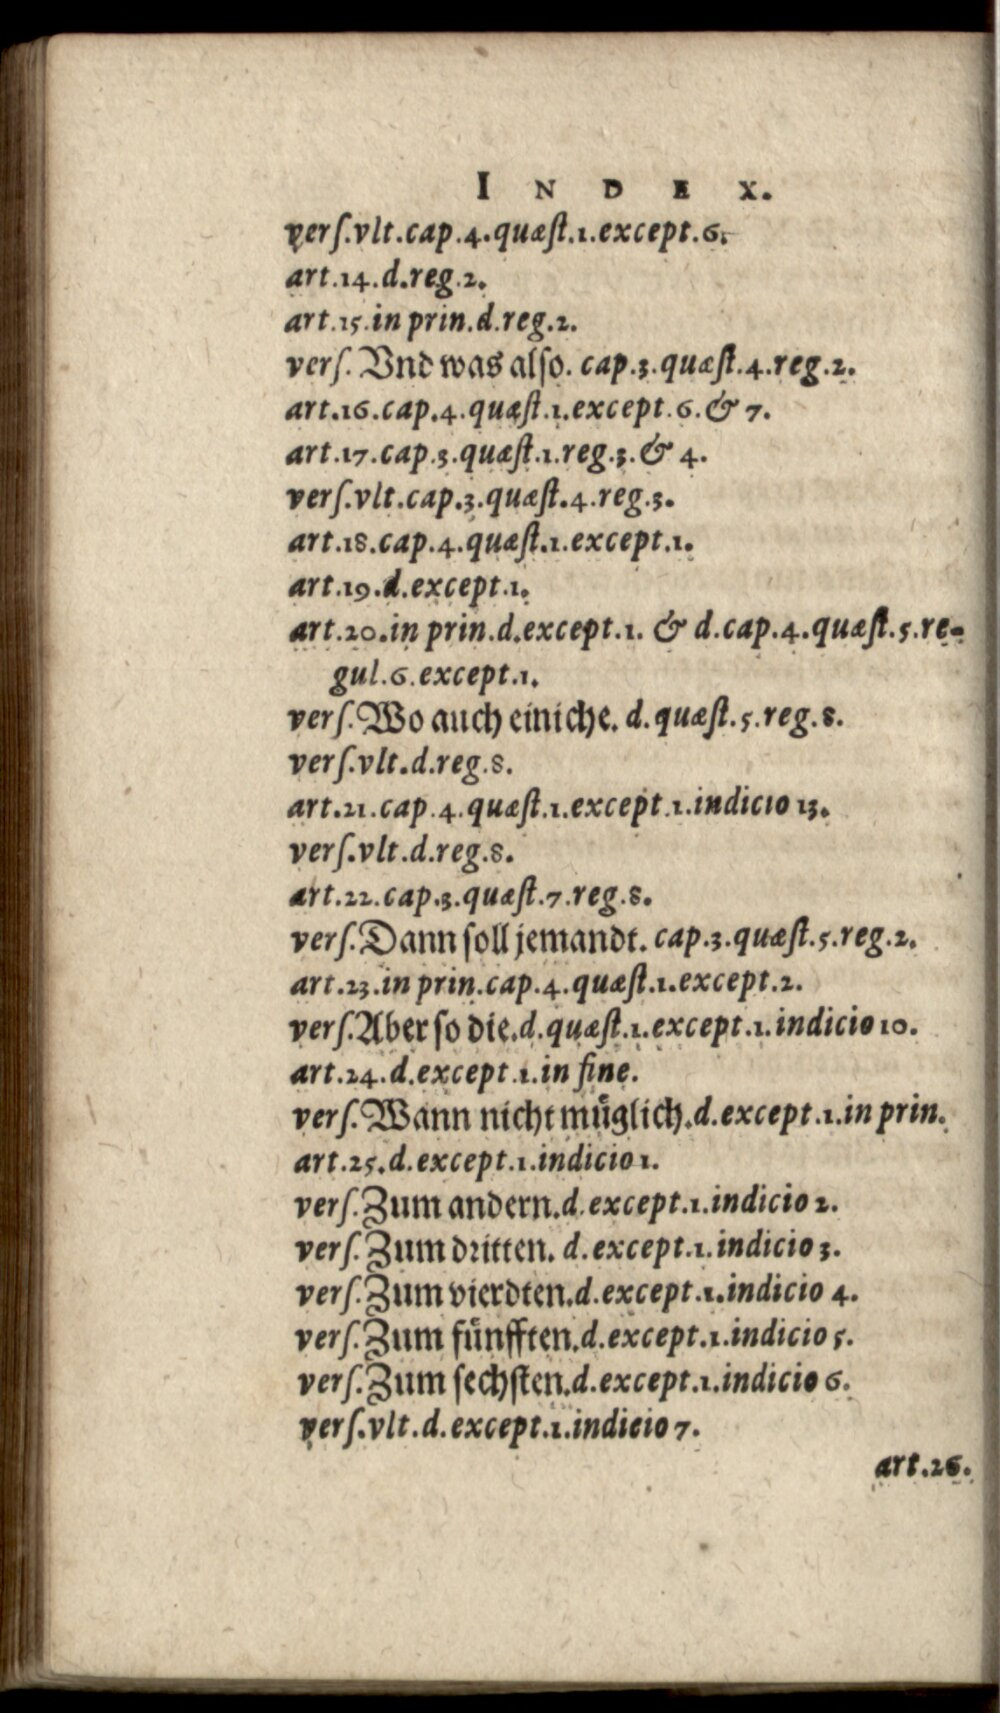 INDEX.
verſ.vlt.cap.4.quæſt.1.except.6.
art.14.d.reg.2.
art.15.in prin.d.reg.2.
verſ. Vnd was alſo. cap.3.quæſt.4.reg.2.
art.16.cap.4.quæſt.1.except.6.& 7.
art.17.cap.3.quæſt.1.reg.3.& 4.
verſ.vlt.cap.3.quæſt.4.reg.3.
art.18.cap.4.quæſt.1.except.1.
art.19.d.except.1.
art.20.in prin.d.except.1. & d.cap.4.quæſt.5.re-
gul.6.except.1.
verſ.Wo auch einiche. d.quæſt.5.reg.8.
verſ.vlt.d.reg.8.
art.21.cap.4.quæſt.1.except.1.indicio 13.
verſ.vlt.d.reg.8.
art.22.cap.3.quæſt.7.reg.8.
verſ.Dann ſoll jemandt. cap.3.quæſt.5.reg.2.
art.23.in prin.cap.4.quæſt.1.except.2.
verſ.Aber ſo die.d.quæſt.1.except.1.indicio 10.
art.24.d.except.1.in fine.
verſ.Wann nicht muͤglich.d.except.1.in prin.
art.25.d.except.1.indicio 1.
verſ.Zum andern.d.except.1.indicio 2.
verſ.Zum dritten. d.except.1.indicio 3.
verſ.Zum vierdten.d.except.1.indicio 4.
verſ.Zum fuͤnfften.d.except.1.indicio 5.
verſ.Zum ſechſten.d.except.1.indicio 6.
verſ.vlt.d.except.1.indicio 7.
art.26.